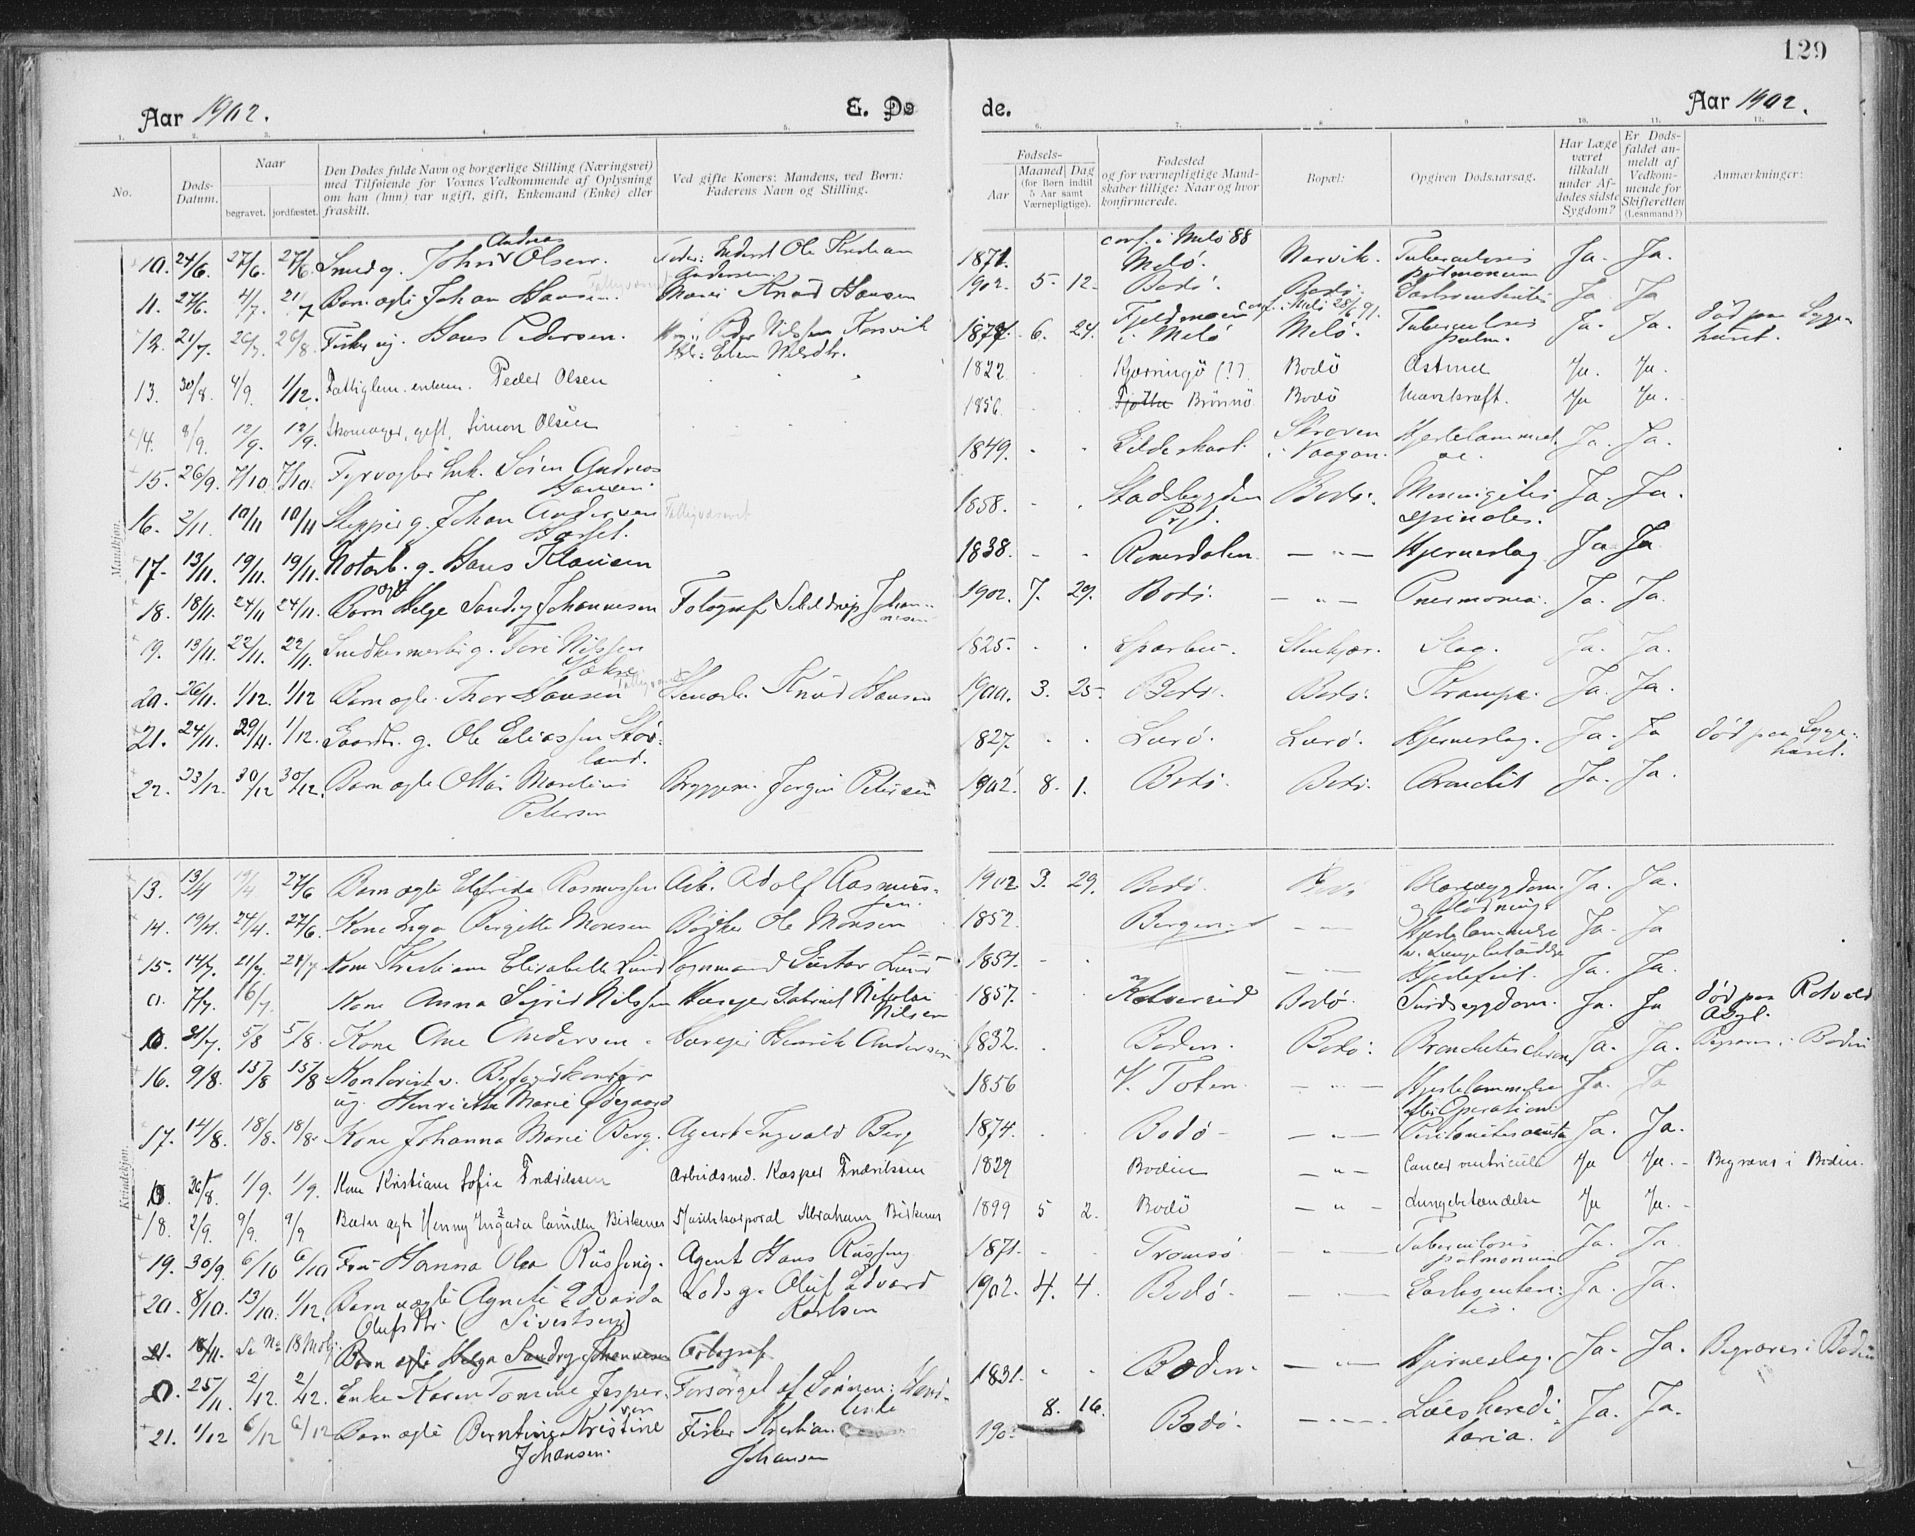 129
Aar 1902. E. Dø
de. Aar 1902.
1. 2. 3. 4. 5. 6. 7. 8. 9. 10. 11. 12.
No.
Døds-Datum.
Naar
begravet. jordfæstet.
Den Dødes fulde Navn og borgerlige Stilling (Næringsvei)
med Tilføiende for Voxnes Vedkommende af Oplysning
om han (hun) var ugift, gift, Enkemand (Enke) eller
fraskilt.
Ved gifte Koner: Mandens, ved Børn:
Faderens Navn og Stilling.
Fødsels-
Aar Maaned Dag
(for Børn indtil
5 Aar samt
Værnepligtige).
Fødested
og for værnepligtige Mand-
skaber tillige: Naar og hvor
konfirmerede.
Bopæl:
Opgiven Dødsaarsag.
Har Læge
været
tilkaldt
under Af-
dødes sidste
Sygdom?
Er Døds-
faldet an-
meldt af
Vedkom-
mende for
Skifteretten
(Lensmand?)
Anmærkninger:
Mandkjøn.
10. 24/6. 27/6. 27/6. Smed g. John Andreas Olsen. 1871. conf. i Melø 88 Melø. Narvik. Tuberculosis pulmonum Ja. Ja.
11. 27/6. 4/7. 21/7 Barn ægte Johan Hansen. Knud Hansen 1902. 5. 12. Bodø. Bodø. Ja Ja
12. 21/7. 26/7. 26/8. Fisker ug. Hans Pedersen. Peder Nilssen Korsvik 1877. 6. 24. i Melø Melø. Tuberculosis pulm. Ja. Ja. død paa Syge-
huset.
13. 30/8. 4/9. 1/12. Fattiglem. enkem. Peder Olsen 1822 Kjerringø (?). Bodø Astma Ja. Ja.
14. 8/9. 12/9. 12/9. Skomager, gift, Simon Olsen 1856 Fjøtta Brønnø Bodø Mavekræft. Ja Ja.
15. 26/9. 7/10. 7/10. Fyrvogter Enk. Sören Andreas
Hansen. 1849. Gildeskaal. Skroven
i Vaagan. Hjertelammelse Ja. Ja.
16. 2/11. 10/11 10/11 Skipper g. Johan Andersen 1858. Stadsbygden Bodø. Meningitis
spinales. Ja. Ja.
17. 13/11. 19/11. 19/11. Notarb. g. Hans Klausen 1838. Ranesdalen — " — Hjerneslag Ja Ja
18. 18/11. 24/11 24/11. Barn ægte Helge Sandry Johannesen Fotograf Johan-
nesen 1902. 7. 29. Bodø. — " — Pneumonia. Ja. Ja.
19. 13/11. 22/11. 22/11. Snedkermester g. Tore Nilssen 1825. Sparbu. Stenkjær. Slag. Ja. Ja.
20. 26/11. 1/12. 1/12 Barn ægte Thor Hansen Knud Hansen 1900. 3. 25. Bodø. Bodø. Krampe. Ja. Ja.
21. 24/11. 29/11. 1/12. Gaardbr. g. Ole Eliassen Stor-
land. 1827. Lurø. Lurø. Hjerneslag. Ja. Ja død paa Syge-
huset.
22. 23/12. 30/12 30/12. Barn ægte Ottar Marelius
Petersen Bryggem. Jørgen Petersen 1902. 8. 1. Bodø. Bodø. Bronchit Ja. Ja.
Kvindekjøn.
13. 13/4 19/4 27/6 Barn ægte Elfrida Rasmussen Arb. Adolf Rasmus-
sen. 1902 3. 29. Bodø. Bodø Ja. Ja.
14. 19/4. 24/4. 27/6. Kone Inga Birgitte Monsen Bødker Ole Monsen 1852. Bergen — " — Hjertelammelse Ja. Ja
15. 14/7. 21/7. 21/7 Kone Kristiane Elisabeth Lund Vognmand Gustav Lund — " — Hjertefeil. Ja. Ja.
0. 7/7. 16/7. Kone Anna Sigrid Nilssen Gabriel Nikolai
Nilsen 1857. Kolvereid Bodø. Sindssygdom. Ja. Ja død paa Rotvold
Asyl.
0. 31/7. 5/8 5/8. Kone Ane Andersen. Henrik Andersen 1832. Bodin. Bodø. Bronchites Ja. Ja. Begraves i Bodin
16. 9/8. 15/8 15/8 Kontorist v. Byfogdkontor
ug. Henriette Marie Ødegaard 1856 V. Toten — " — Hjertelammelse
efter Operation Ja. Ja
17. 14/8. 18/8. 18/8. Kone Johanna Marie Berg. Agent Ingvald Berg 1874. Bodø — " — Peritonites acuta Ja. Ja.
0 26/8. 1/9. 1/9. Kone Kristiane Sofie Fredriksen Arbeidsmd. Kasper Fredriksen 1829 Bodin — " — Cancer ventriculi Ja Ja. Begraves i Bodin.
18. 2/9. 9/9. 9/9 Barn ægte Henny Ingara Camilla Birkenes Abraham Birkenes 1899 5 2. Bodø — " — Lungebetændelse Ja Ja.
19. 30/9. 6/10 6/10 Fru Hanna Olea Rüssing. Agent Hans Rüssing 1871. Tromsø — " — Tuberculosis
pulmonum Ja. Ja.
20. 8/10. 13/10. 1/12. Barn uægte Agnete Edvarda
Olufsdtr. (Sivertsen) Lods g. Oluf Edvard
Karlsen 1902. 4. 4. Bodø. — " — Ja. Ja.
21. 18/11. Se No 18 Barn ægte Helga Sandry Johannesen Fotograf
0. 25/11. 2/12. 2/12. Enke Karen Tomine Jesper-
sen Forsørget af Sønnen: 1831. Bodin. — " — Hjerneslag. Ja. Ja. Begraves i Bodin
21. 1/12 6/12 6/12 Barn ægte Berntine Kristine
Johansen. Fisker Kristian
Johansen 190 8. 16. Bodø. — " — Lues heredi-
taria. Ja. Ja.